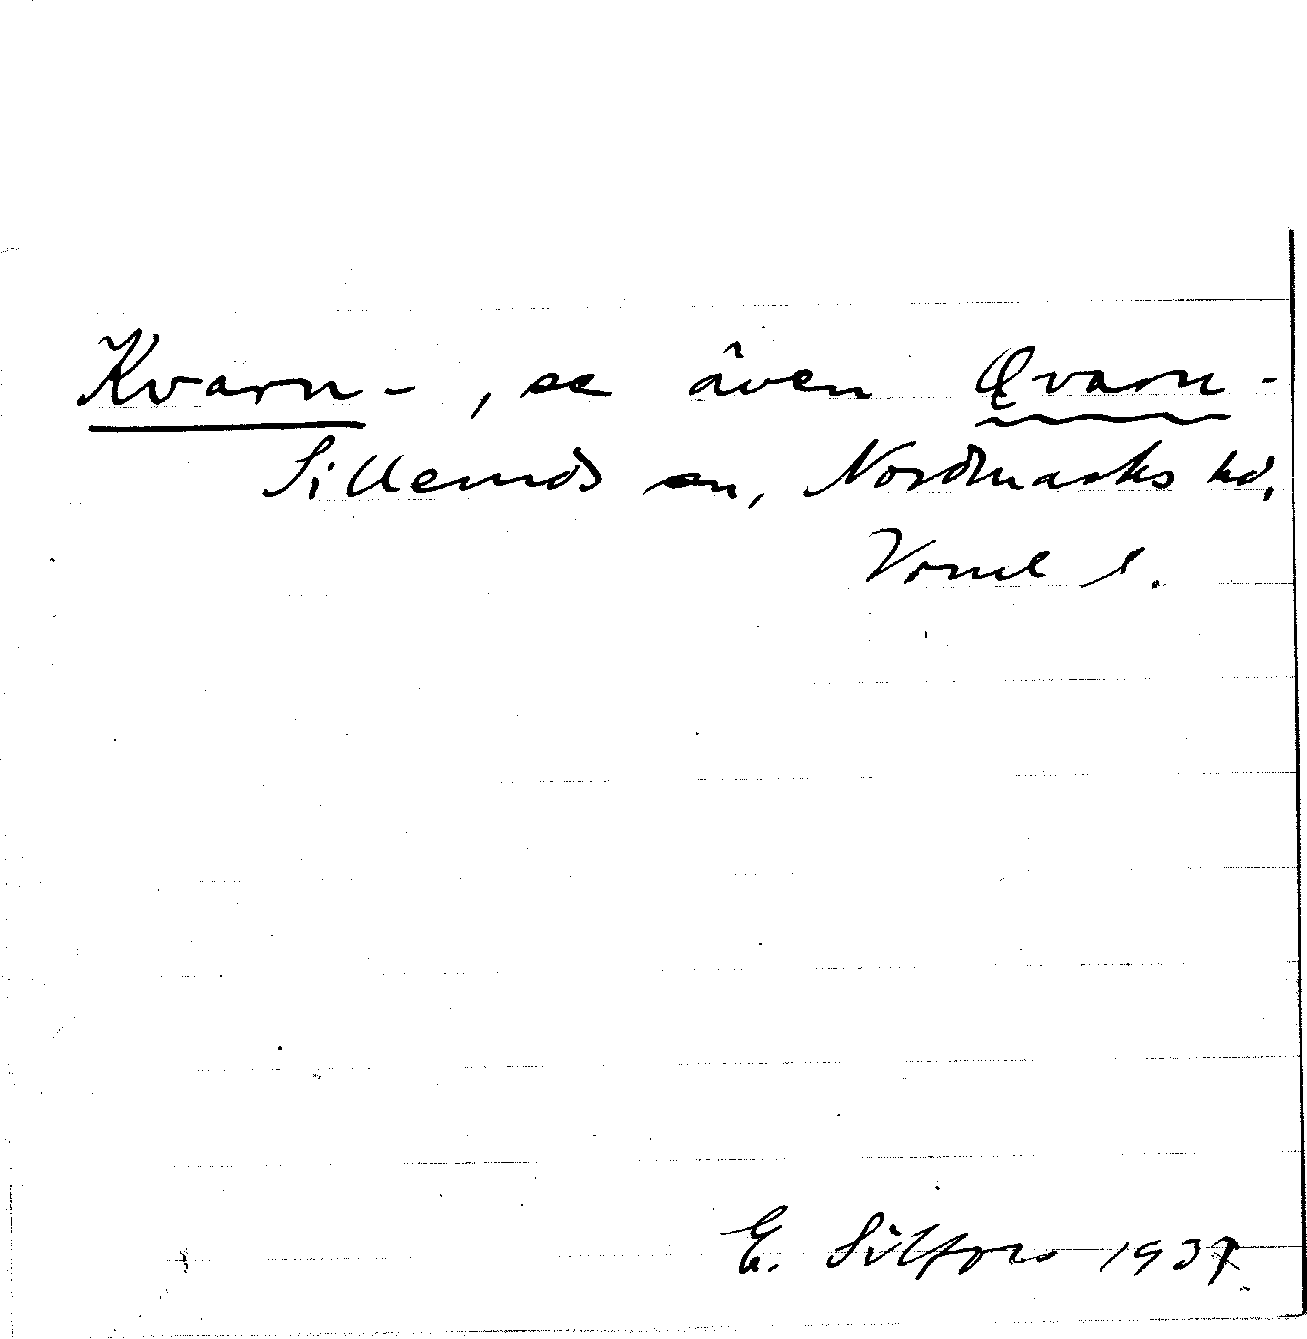 Kvarn-, se även Qvarn-
Sillerud sn, Nordmarks hd,
Värml l.
E. Silfors 1937